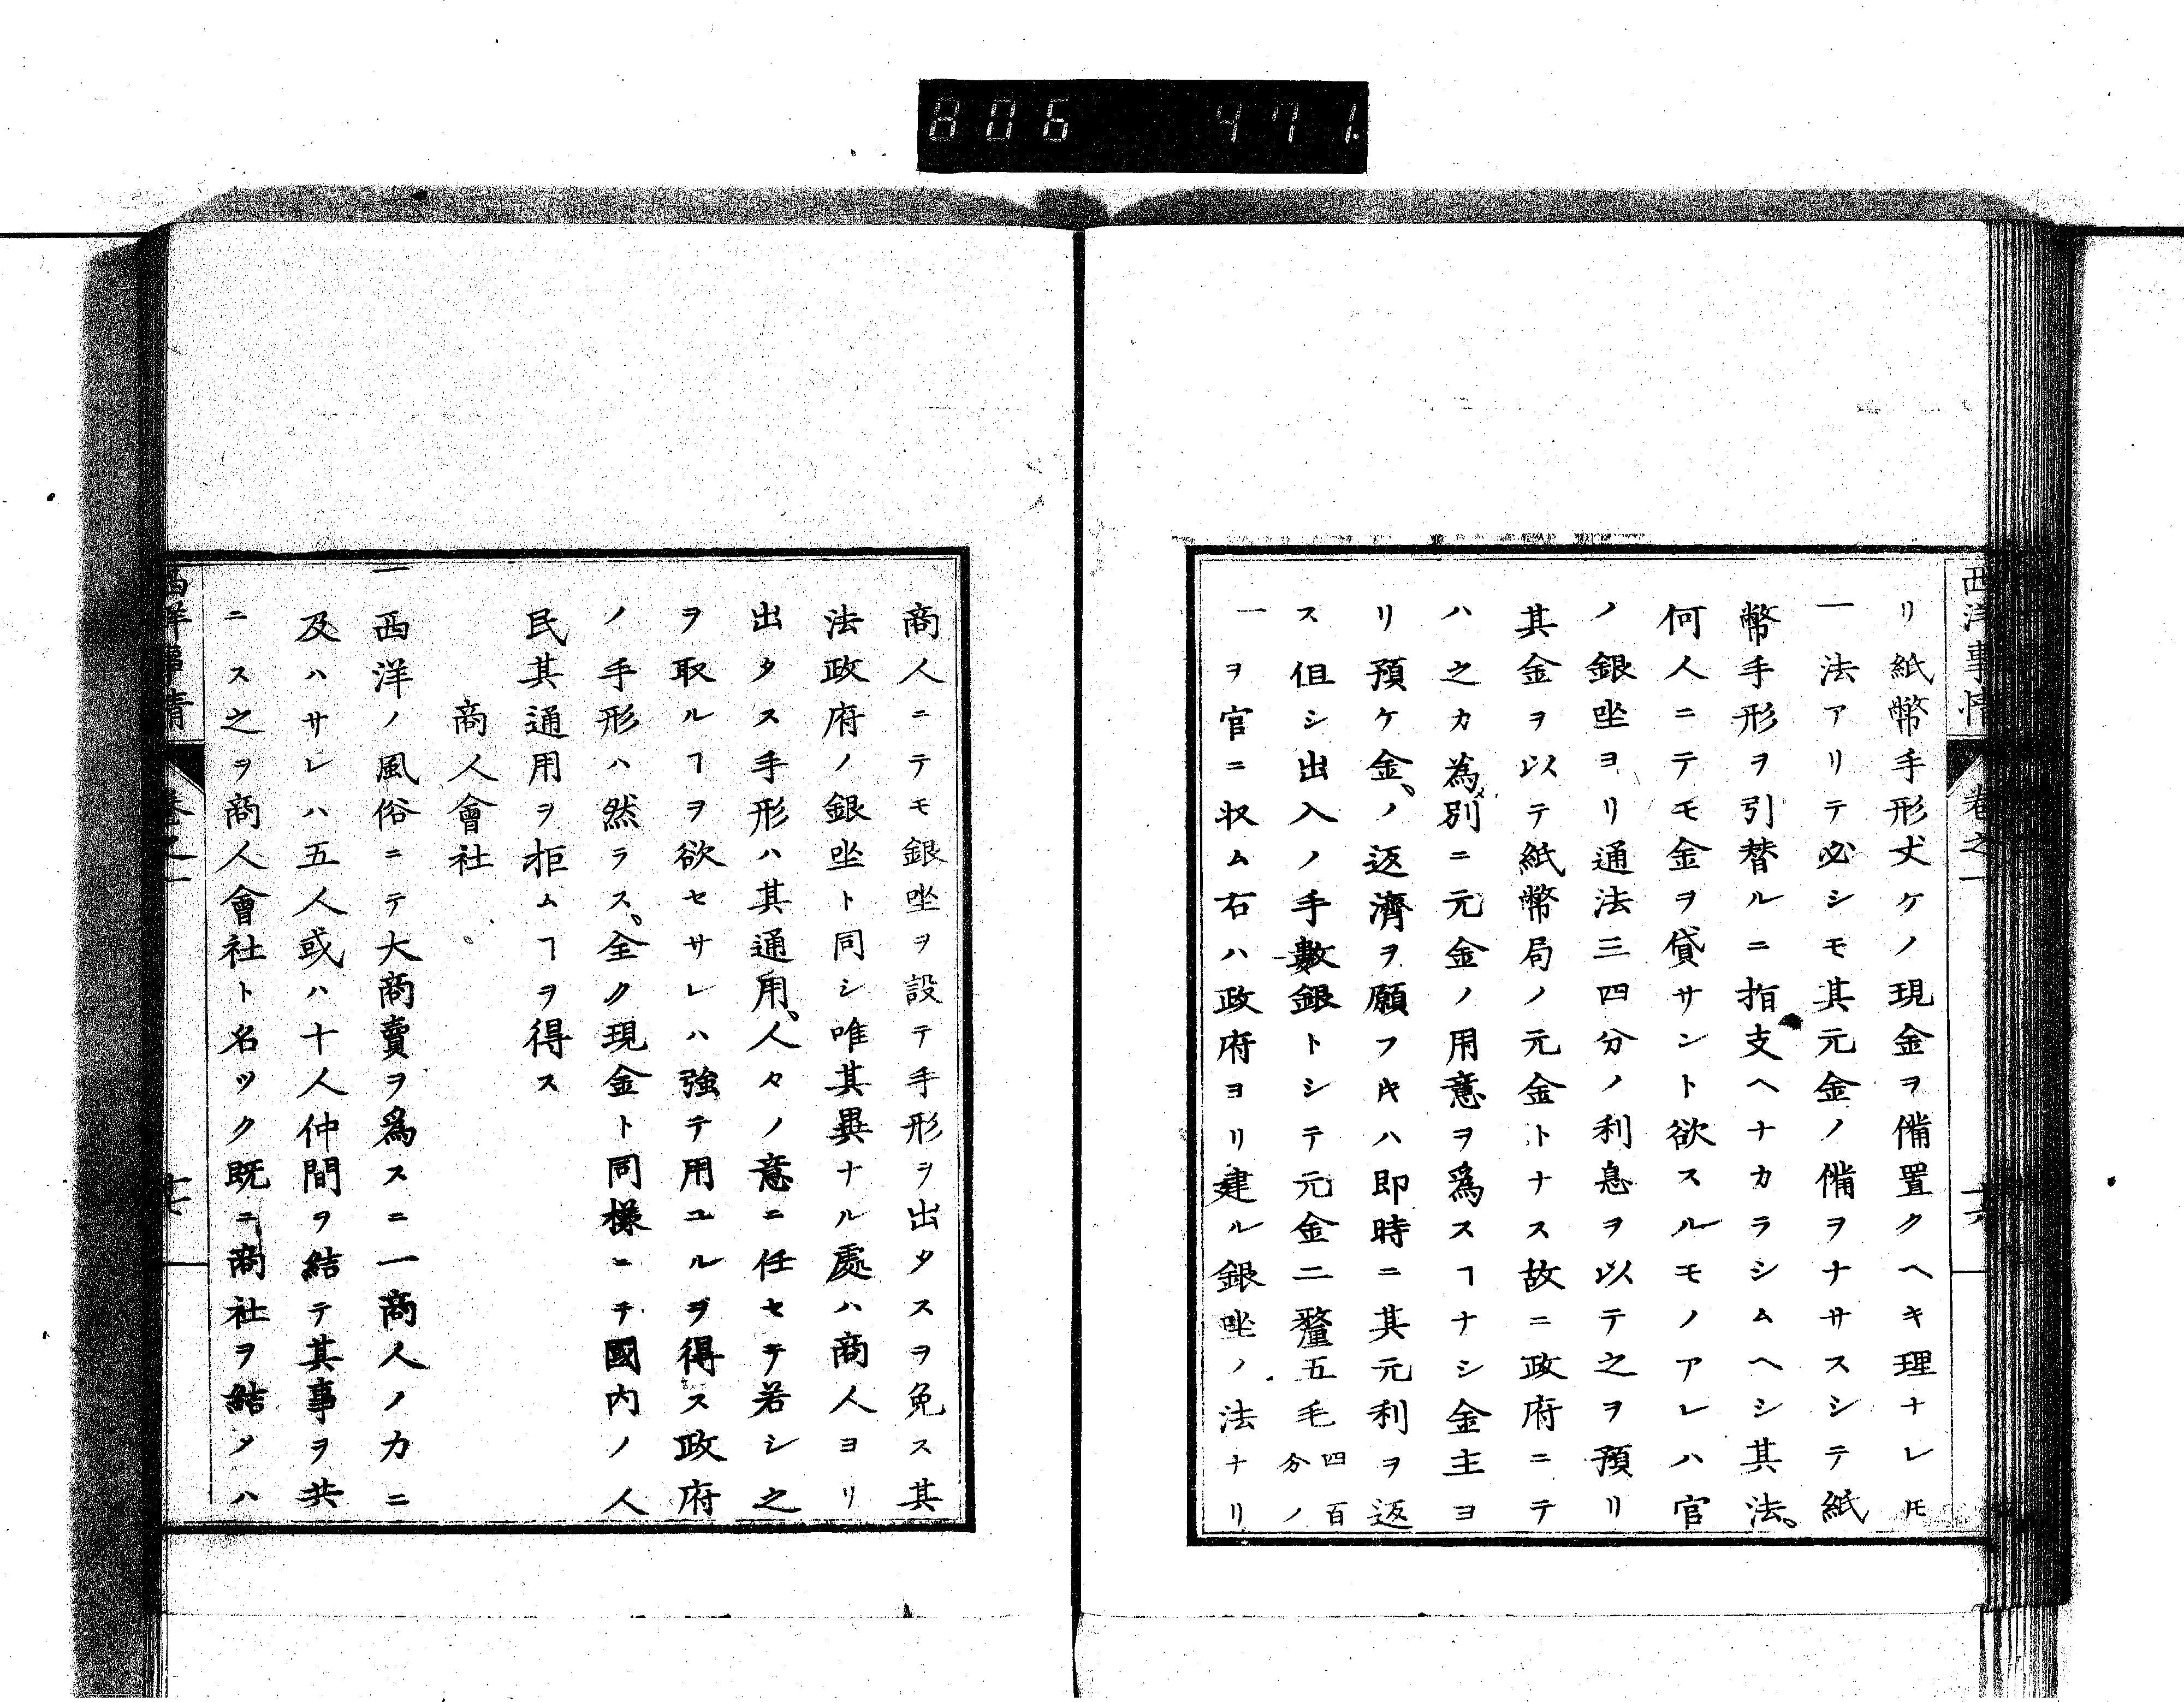 806 471.
西洋事情
卷之一
十六
リ紙幣手形𠀋ケノ現金ヲ備置クヘキ理ナレ𪜈
一法アリテ必シモ其元金ノ備ヲナサスシテ紙
幣手形ヲ引替ルニ指支ヘナカラシムヘシ其法、
何人ニテモ金ヲ貸サント欲スルモノアレハ官
ノ銀坐ヨリ通法三四分ノ利息ヲ以テ之ヲ預リ
其金ヲ以テ紙幣局ノ元金トナス故ニ政府ニテ
ハ之カ為別ニ元金ノ用意ヲ爲スヿナシ金主ヨ
リ預ケ金、ノ返濟ヲ願フ𪜈ハ即時ニ其元利ヲ返
ス但シ出入ノ手數銀トシテ元金二釐五毛四百分ノ
一ヲ官ニ収ム右ハ政府ヨリ建ル銀坐ノ法ナリ
商人ニテモ銀坐ヲ設テ手形ヲ出タスヲ免ス其
法政府ノ銀坐ト同シ唯其異ナル處ハ商人ヨリ
出タス手形ハ其通用、人々ノ意ニ任セテ若シ之
ヲ取ルヿヲ欲セサレハ強テ用ユルヲ得ス政府
ノ手形ハ然ラス、全ク現金ト同樣ニテ國内ノ人
民其通用ヲ拒ムヿヲ得ス
商人會社
一西洋ノ風俗ニテ大商賣ヲ爲スニ一商人ノカニ
及ハサレハ五人或ハ十人仲間ヲ結テ其事ヲ共
ニス之ヲ商人會社ト名ツク既ニ商社ヲ結メハ
西洋事情
卷之一
十七